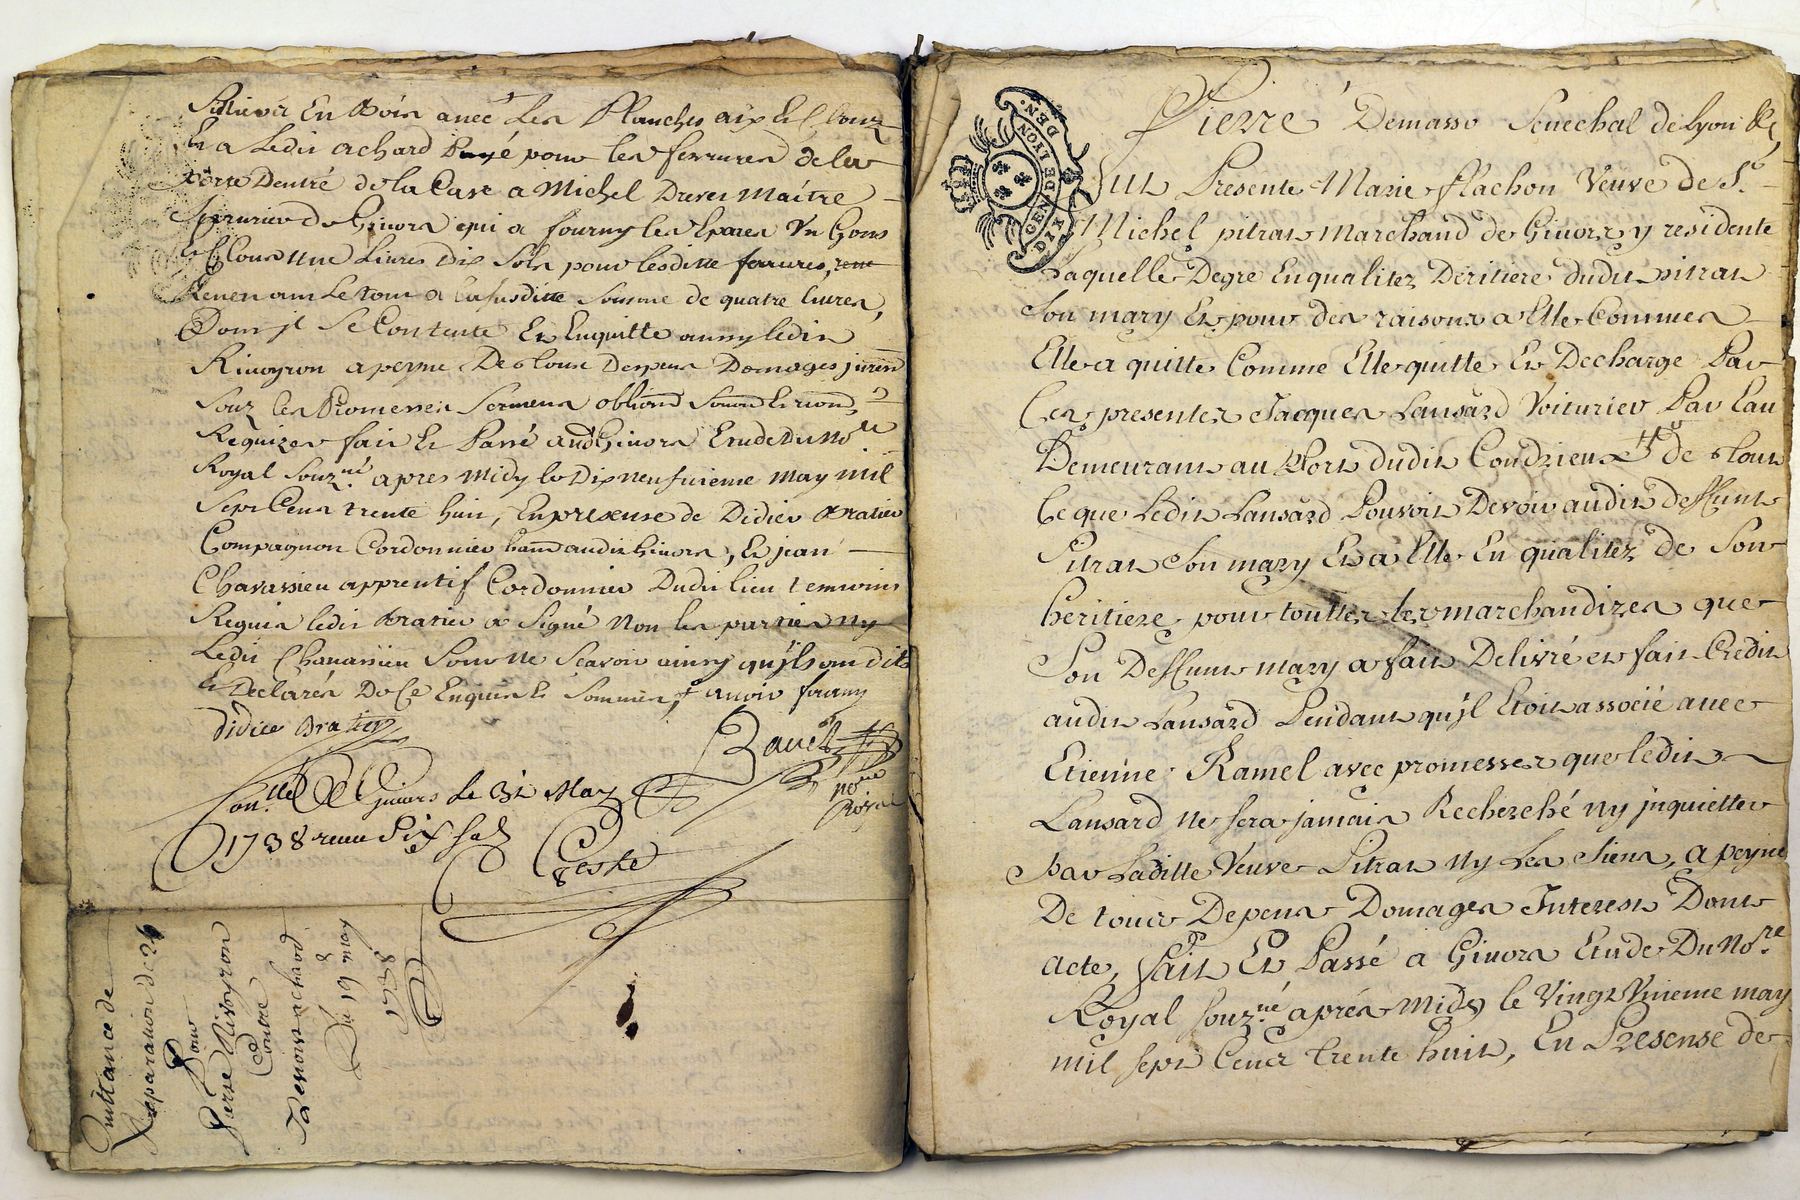 en Bois avec Les Planches aix et Clouz
Et a Ledit achard Payé pour les ferrures de la
porte Dentré de la Cave a Michel Dreves Maitre
Serrurier de Givors qui a fourny les Un Gons
et Clous une Livres Dix Sols pour lesditte ferrures,
Revenant Le tout a la susditte somme de quatre livres,
Dont jl Se Contente Et Enquitte ainsy ledit
Rivoyron a peyne De tous Despens Domages jnterest
Souz les Promesses Sermens
Requizes fait Et Passé audt Givors Etude Du No.re
Royal Souz.né apres Midy le Dix neufuieme may mil
Sept Cens trente huit, En presense de Didier Bratier
Compagnon Cordonnier audit Givors, Et jean
Chavassieu apprentif Cordonnier Dudit lieu temoins
Requis ledit Bratier a Signé Non les parties ny
Ledit Chavassieu pour ne Scavoir ainsy qu'jls ont dit
et Declarés De Ce Enquis Et Sommés, avoir fourny
didier Bratier
Givors le 31 May
1738 receu Six sols
Royal
Quittance de
Reparation de 24
Pour
Pierre Rivoyron
Contre
achard
Du 19 may
1738
Pierre Demasso Senechal de Lyon &c
GEN. DE LYON
DIX DEN.
Fut Presente Marie flachon Veuve de S.r
Michel pitrat Marchand de Givors y residente
Laquelle Degré En qualitez Deritiere dudit pitrat
Son mary Et pour des raisons a Elle Connues
Elle a quitté Comme Elle quitte Et Decharge Par
Ces presentes Jacques Lansard Voiturier Par Eau
Demeurant au Port dudit Condrieux de tout
Ce que Ledit Lansard Pouvoit Devoir audit deffunt
Pitrat Son mary Et a Elle En qualitez de Son
heritiere pour touttes les marchandizes que
Son Deffunt mary a fait Delivré et fait Credit
audit Lansard Pendant qu'jl Etoit associé avec
Etienne Ramel avec promesses que ledit
Lansard ne sera jamais Recherché ny jnquietter
par Laditte Veuve Pitrat ny Les Siens, a peyne
De tous Depens Domages Interest Dont
acte, fait Et Passé a Givors Etude Du No.re
Royal souz.né aprés Midy le Vingt Unieme may
mil sept Cent trente huit, En Presense de